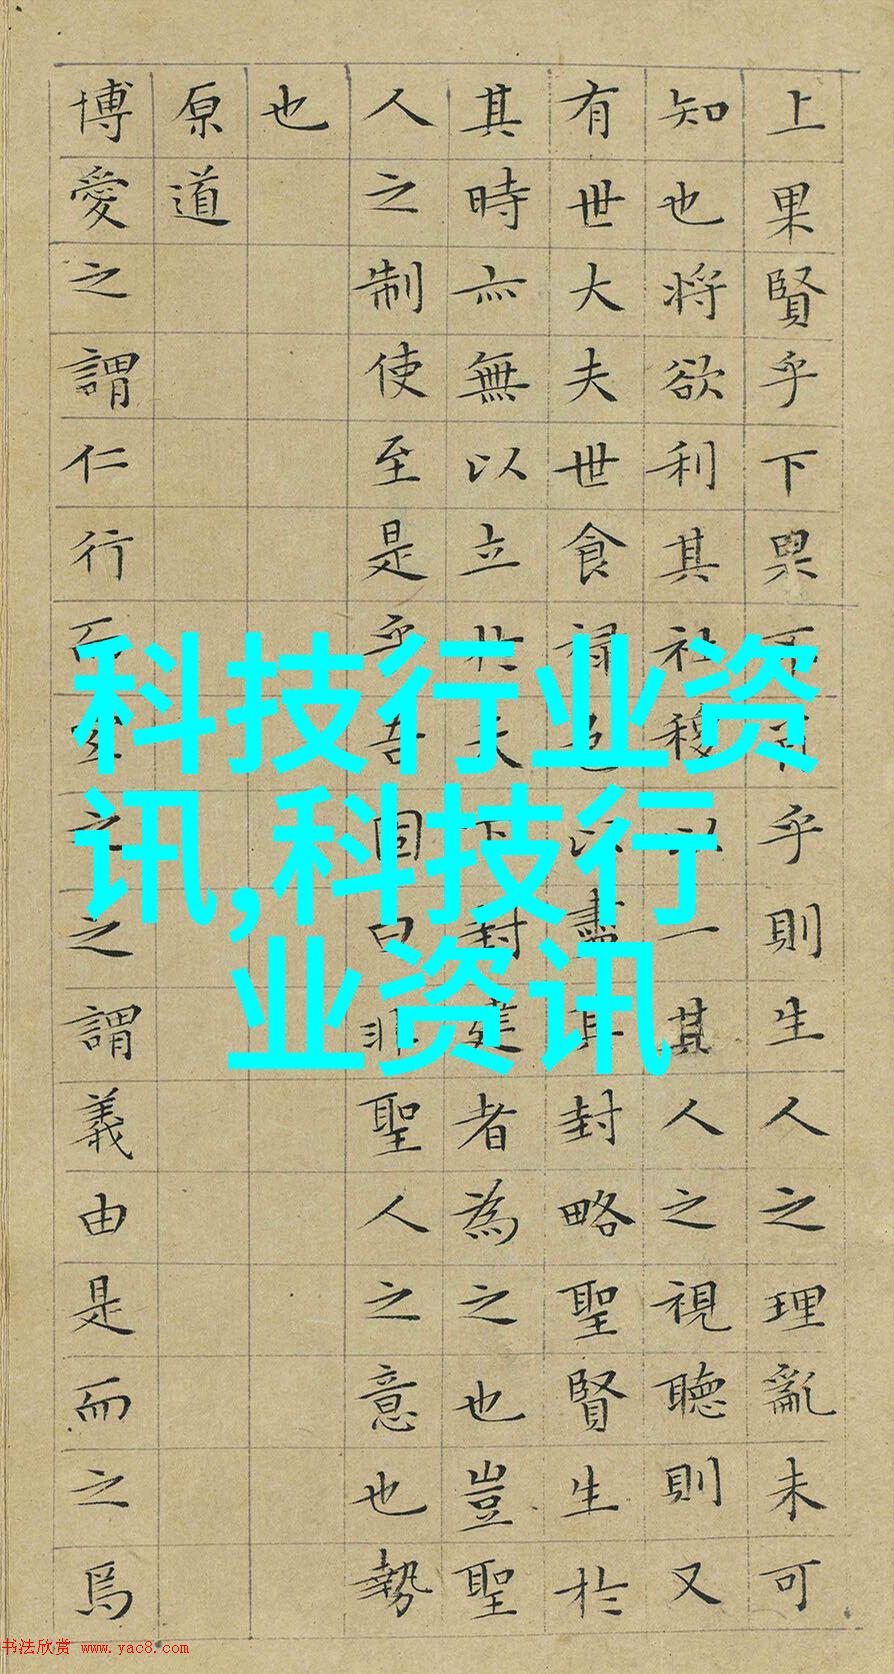 上果賢乎下果不肖乎則生人之理亂未可
知也將欲利其社稷以一其人之視聽則又
有世大夫世食禄邑以盡其封略聖賢生於
其時亦無以立於天下封建者為之也豈聖
人之制使至是乎吾固曰非聖人之意也勢
也
原道
博愛之謂仁行而宜之之謂義由是而之焉
科技行业资
讯,科技行
业资讯
书法欣赏 www.yac8.com